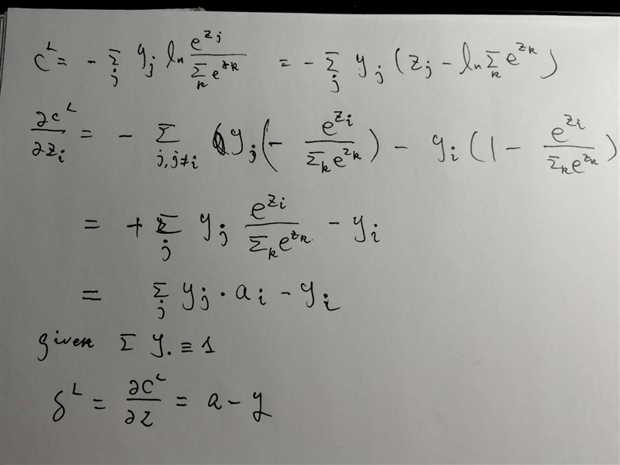 C^L = - Σ_j y_j ln e^{z_j} / Σ_k e^{z_k} = - Σ_j y_j (z_j - ln Σ_k e^{z_k})
∂C^L / ∂z_i = - Σ_{j, j≠i} y_j (- e^{z_i} / Σ_k e^{z_k}) - y_i (1 - e^{z_i} / Σ_k e^{z_k})
= + Σ_j y_j e^{z_i} / Σ_k e^{z_k} - y_i
= Σ_j y_j · a_i - y_i
given Σ y. ≡ 1
δ^L = ∂C^L / ∂z = a - y